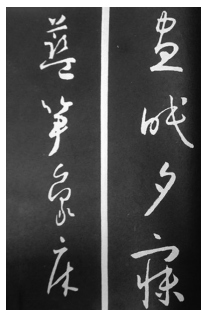 晝眠夕寐
藍笋象床